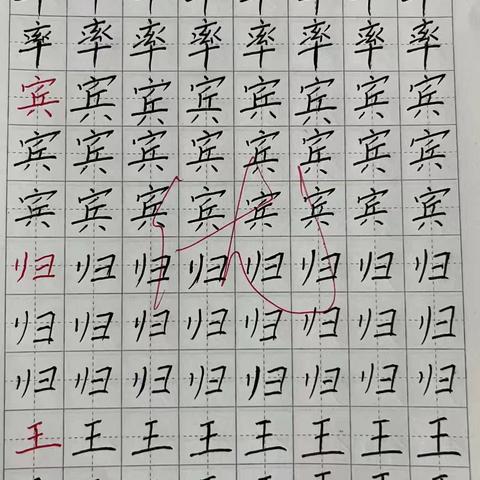 率率率率率率率率
宾宾宾宾宾宾宾宾
宾宾宾宾宾宾宾宾
宾宾宾宾宾宾宾宾
归归归归归归归归
归归归归归归归归
归归归归归归归归
王王王王王王王王